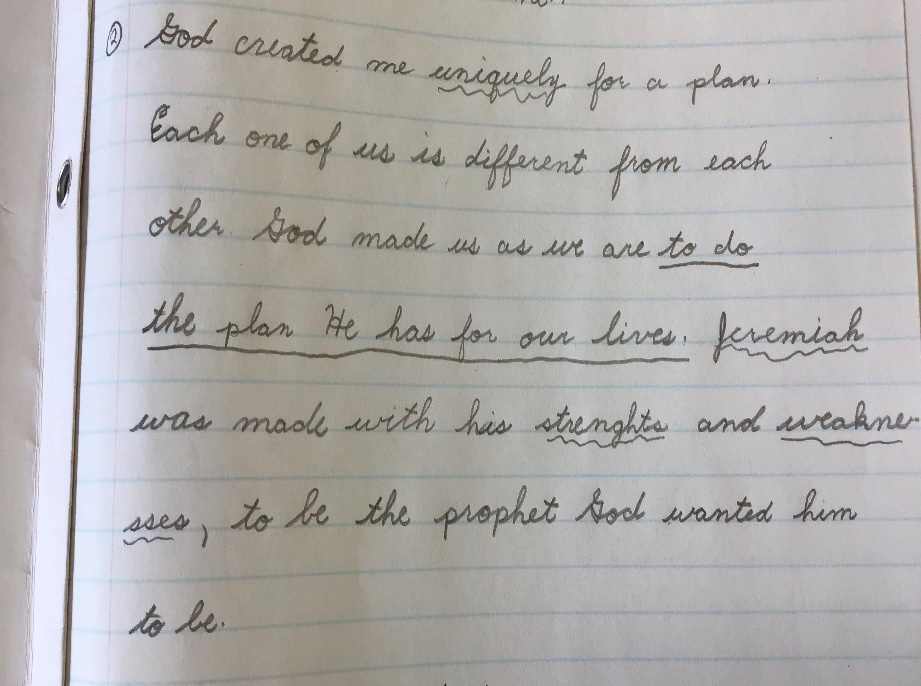 ② God created me uniquely for a plan.
Each one of us is different from each
other. God made us as we are to do
the plan He has for our lives. Jeremiah
was made with his strenghts and weakne-
sses, to be the prophet God wanted him
to be.